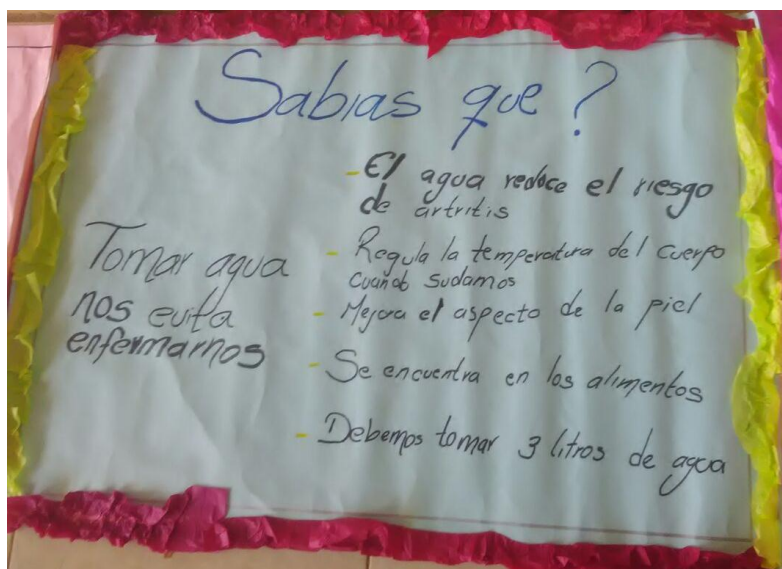 Sabias que ?
Tomar agua
nos evita
enfermarnos
- El agua reduce el riesgo
de artritis
- Regula la temperatura del cuerpo
cuando sudamos
- Mejora el aspecto de la piel
- Se encuentra en los alimentos
- Debemos tomar 3 litros de agua